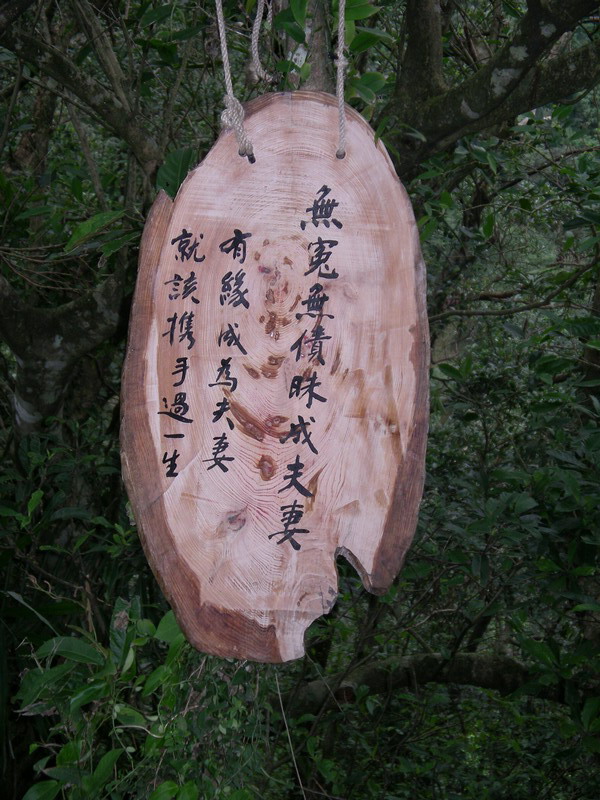 無冤無債眛成夫妻
有緣成為夫妻
就該携手過一生